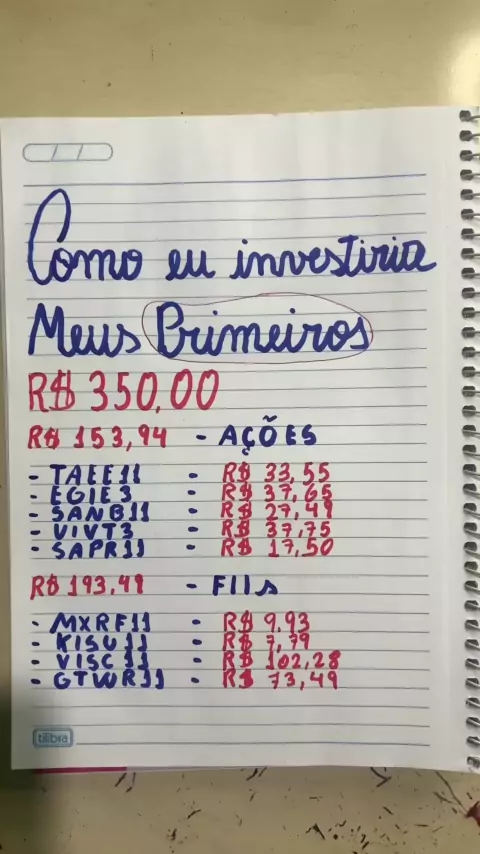 Como eu investiria
Meus Primeiros
R$ 350,00
R$ 153,94 - AÇÕES
- TAEE11 - R$ 33,55
- EGIE3 - R$ 37,65
- SANB11 - R$ 27,49
- VIVT3 - R$ 37,75
- SAPR11 - R$ 17,50
R$ 193,49 - FIIs
- MXRF11 - R$ 9,93
- KISU11 - R$ 7,79
- VISC11 - R$ 102,28
- GTWR11 - R$ 73,49
tilibra